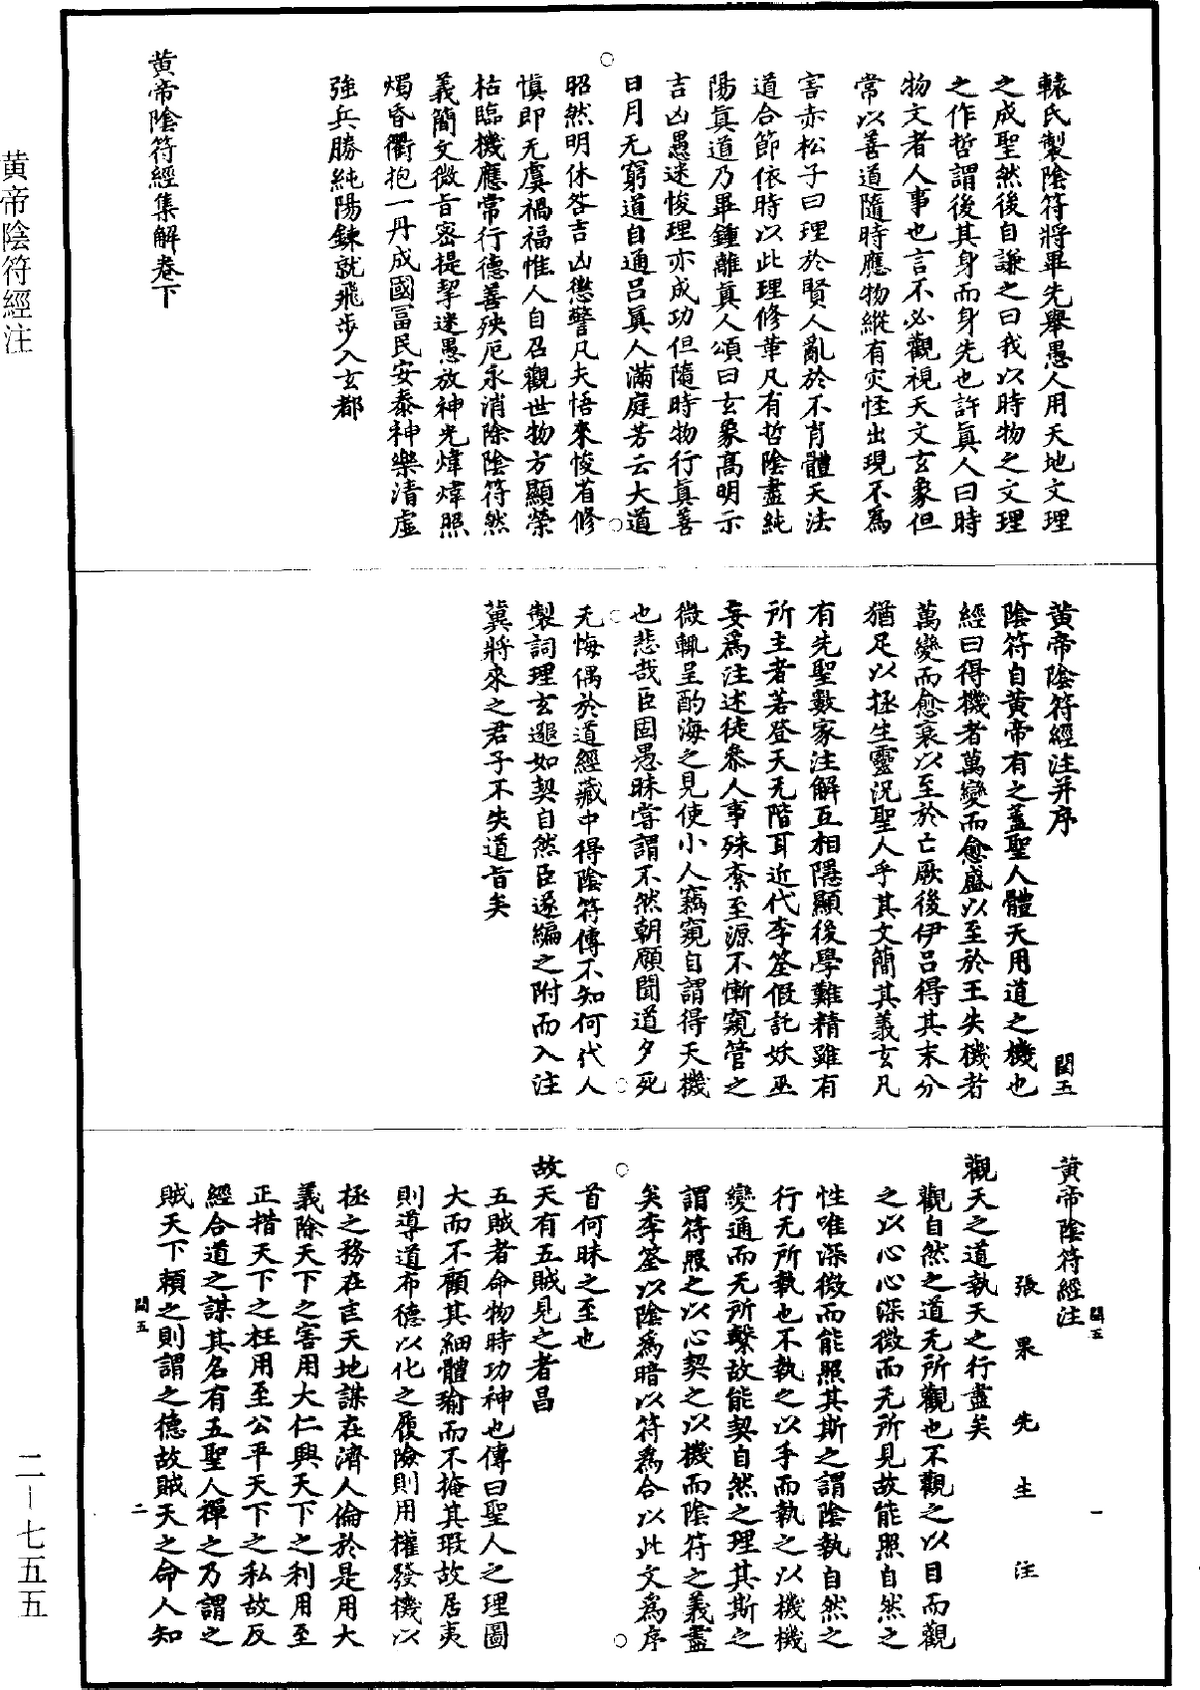 轅氏製陰符將畢先舉愚人用天地文理
之成聖然後自謙之曰我以時物之文理
之作哲謂後其身而身先也許真人曰時
物文者人事也言不必觀視天文玄象但
常以善道隨時應物縱有灾怪出現不為
害赤松子曰理於賢人亂於不肖體天法
道合節依時以此理修華凡有哲陰盡純
陽真道乃畢鍾離真人頌曰玄象高明示
吉凶愚迷悛理亦成功但隨時物行真善
日月无窮道自通呂真人滿庭芳云大道
昭然明休咎吉凶懲警凡夫悟來悛省修
慎即无虞禍福惟人自召觀世物方顯榮
枯臨機應常行德善殃厄永消除陰符然
義簡文微旨密提挈迷愚放神光煒煒照
燭昏衢抱一丹成國富民安泰神樂清虛
強兵勝純陽鍊就飛步入玄都
黃帝陰符經集解卷下
黃帝陰符經注并序
閏五
陰符自黃帝有之蓋聖人體天用道之機也
經曰得機者萬變而愈盛以至於王失機者
萬變而愈衰以至於亡厥後伊呂得其末分
猶足以拯生靈況聖人乎其文簡其義玄凡
有先聖數家注解互相隱顯後學難精雖有
所主者若登天无階耳近代李筌假託妖巫
妄為注述徒參人事殊紊至源不慚窺管之
微輒呈酌海之見使小人竊窺自謂得天機
也悲哉臣固愚昧嘗謂不然朝願聞道夕死
无悔偶於道經藏中得陰符傳不知何代人
製詞理玄邈如契自然臣遂編之附而入注
冀將來之君子不失道旨矣
黃帝陰符經注
閏五
一
張果先生注
觀天之道執天之行盡矣
觀自然之道无所觀也不觀之以目而觀
之以心心深微而无所見故能照自然之
性唯深微而能照其斯之謂陰執自然之
行无所執也不執之以手而執之以機機
變通而无所繫故能契自然之理其斯之
謂符照之以心契之以機而陰符之義盡
矣李筌以陰為暗以符為合以此文為序
首何昧之至也
故天有五賊見之者昌
五賊者命物時功神也傳曰聖人之理圖
大而不顧其細體瑜而不掩其瑕故居夷
則導道布德以化之履險則用權發機以
拯之務在匡天地謀在濟人倫於是用大
義除天下之害用大仁興天下之利用至
正措天下之枉用至公平天下之私故反
經合道之謀其名有五聖人禪之乃謂之
賊天下賴之則謂之德故賊天之命人知
閏五
二
黃帝陰符經注
二－七五五